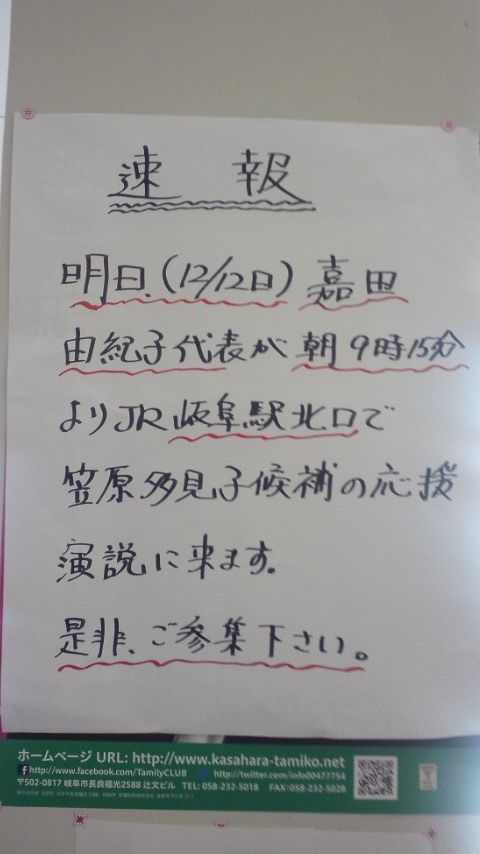 速報
明日.(12/12日)嘉田
由紀子代表が朝9時15分
よりJR岐阜駅北口で
笠原多見子候補の応援
演説に来ます。
是非、ご参集下さい。
ホームページ URL: http://www.kasahara-tamiko.net
http://www.facebook.com/TamilyCLUB http://twitter.com/info00477754
〒502-0817 岐阜市長良福光2588 辻文ビル TEL: 058-232-5018 FAX: 058-232-5028